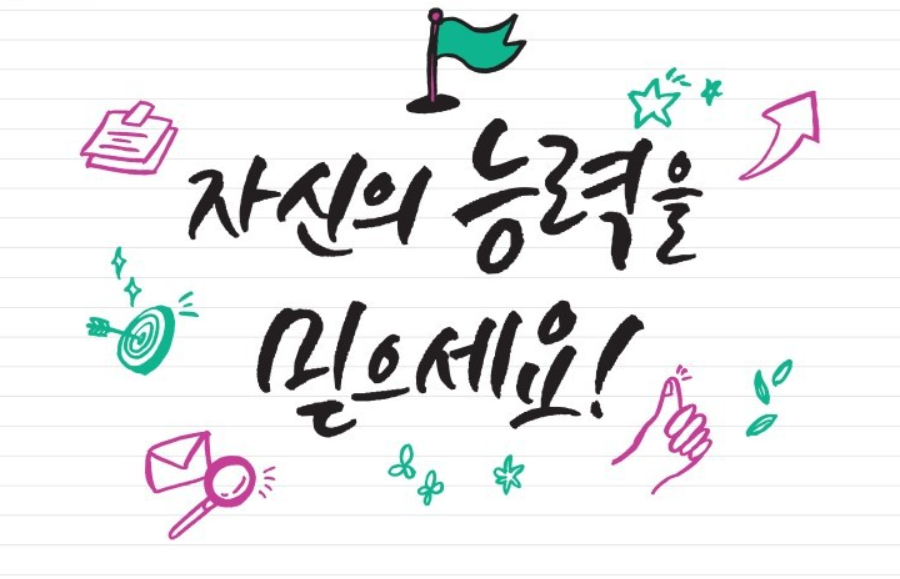 자신의 능력을
믿으세요!